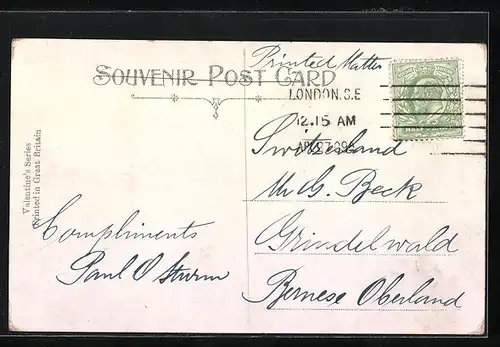 Printed Matter
SOUVENIR POST CARD
LONDON.S.E
12.15 AM
Switzerland
Mr G. Beck
Grindelwald
Bernese Oberland
Compliments
Paul O Sturm
Valentine's Series
Printed in Great Britain